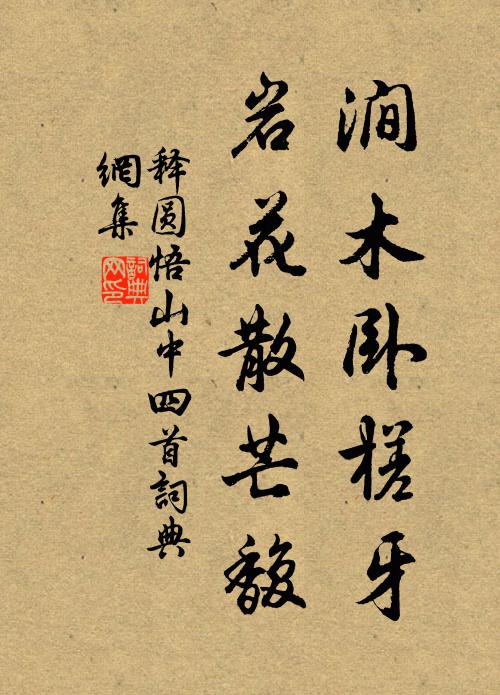 涧木卧槎牙
岩花散芒馥
释圆悟山中四首詞典
網集
詞典
网印